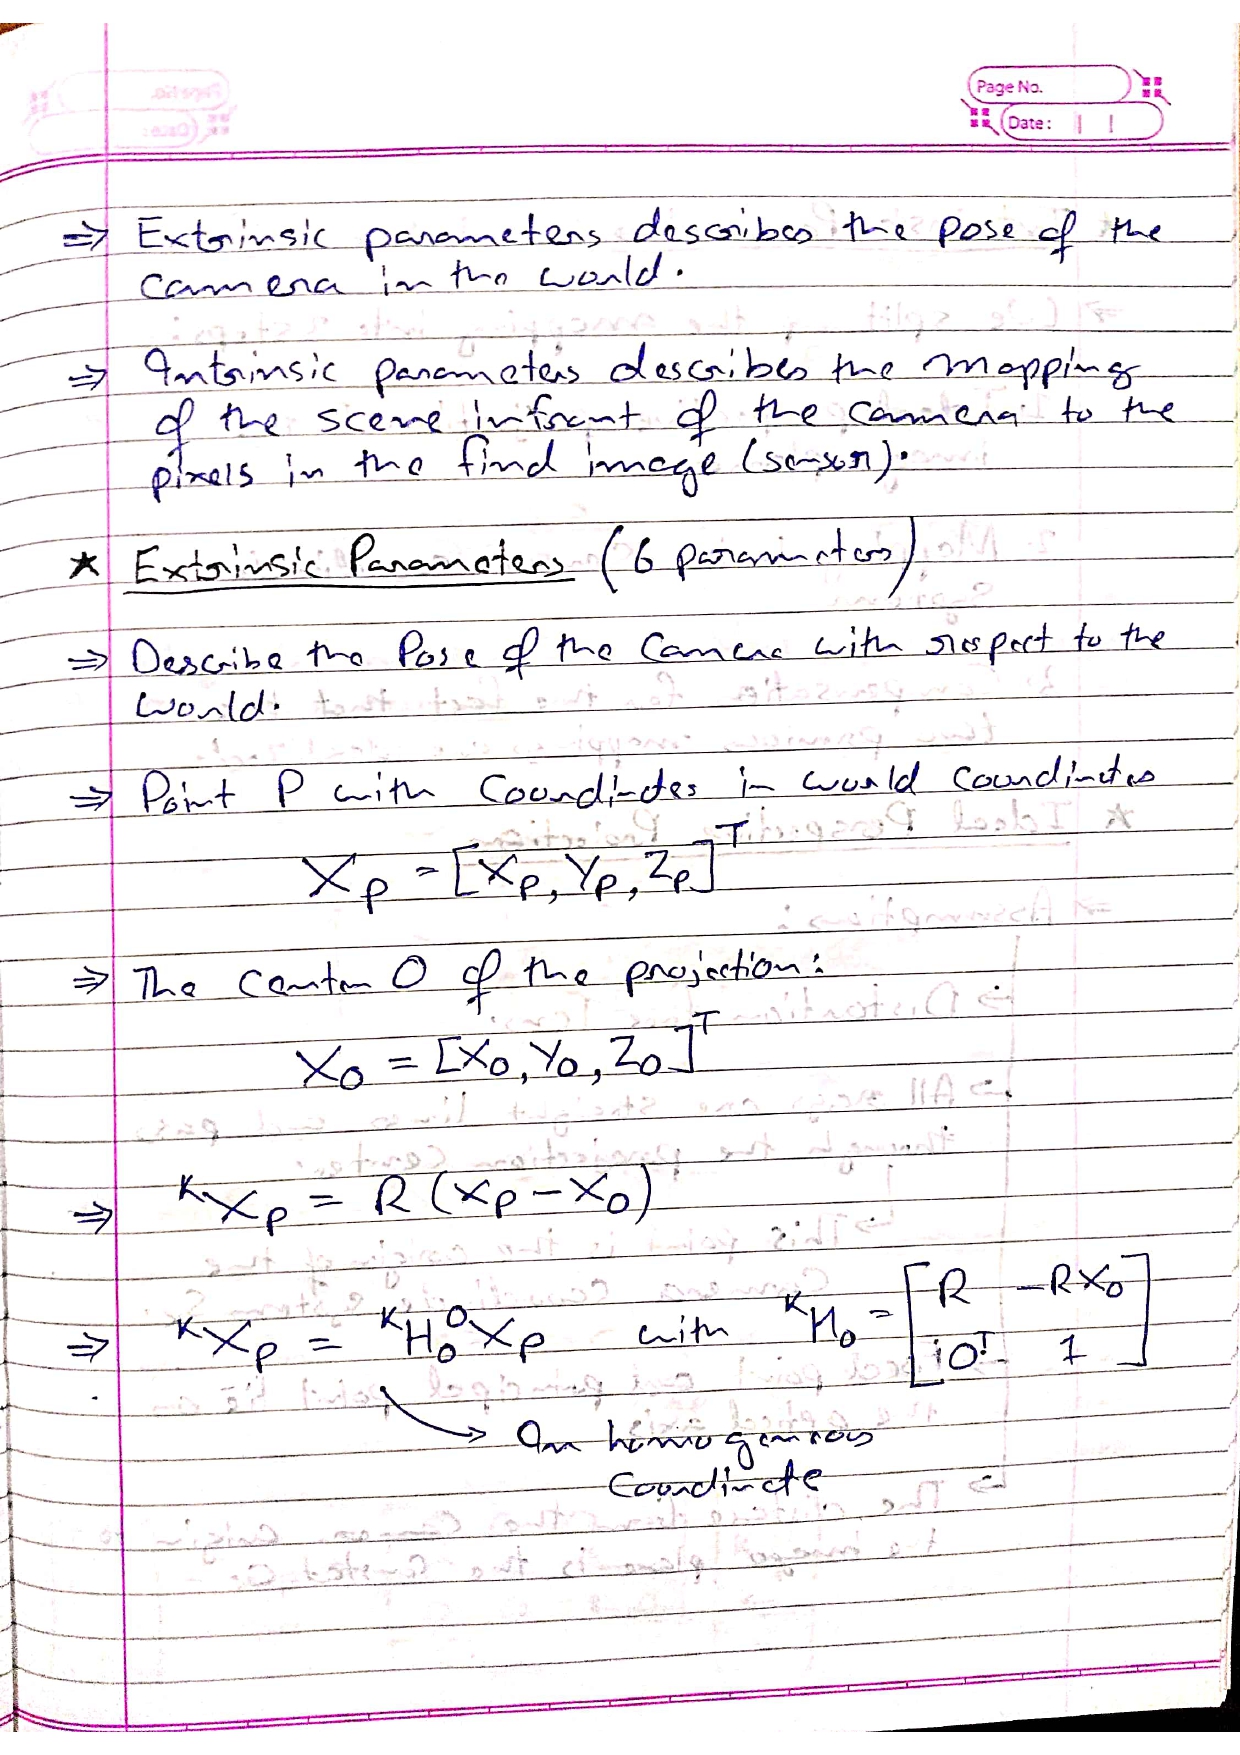 Page No.
Date:
⇒ Extrinsic parameters describes the pose of the
camera in the world.
⇒ Intrinsic parameters describes the mapping
of the scene infront of the camera to the
pixels in the find image (sensor).
★ Extrinsic Parameters (6 parameters)
⇒ Describe the Pose of the Camera with respect to the
world.
⇒ Point P with Coordinates in world coordinates
X_P = [X_P, Y_P, Z_P]^T
⇒ The Center O of the projection:
X_O = [X_O, Y_O, Z_O]^T
⇒ ^K X_P = R (X_P − X_O)
⇒ ^K X_P = ^K H_O^O X_P with ^K H_O = [R −RX_O
O^T 1]
→ In homogenous
Coordinate